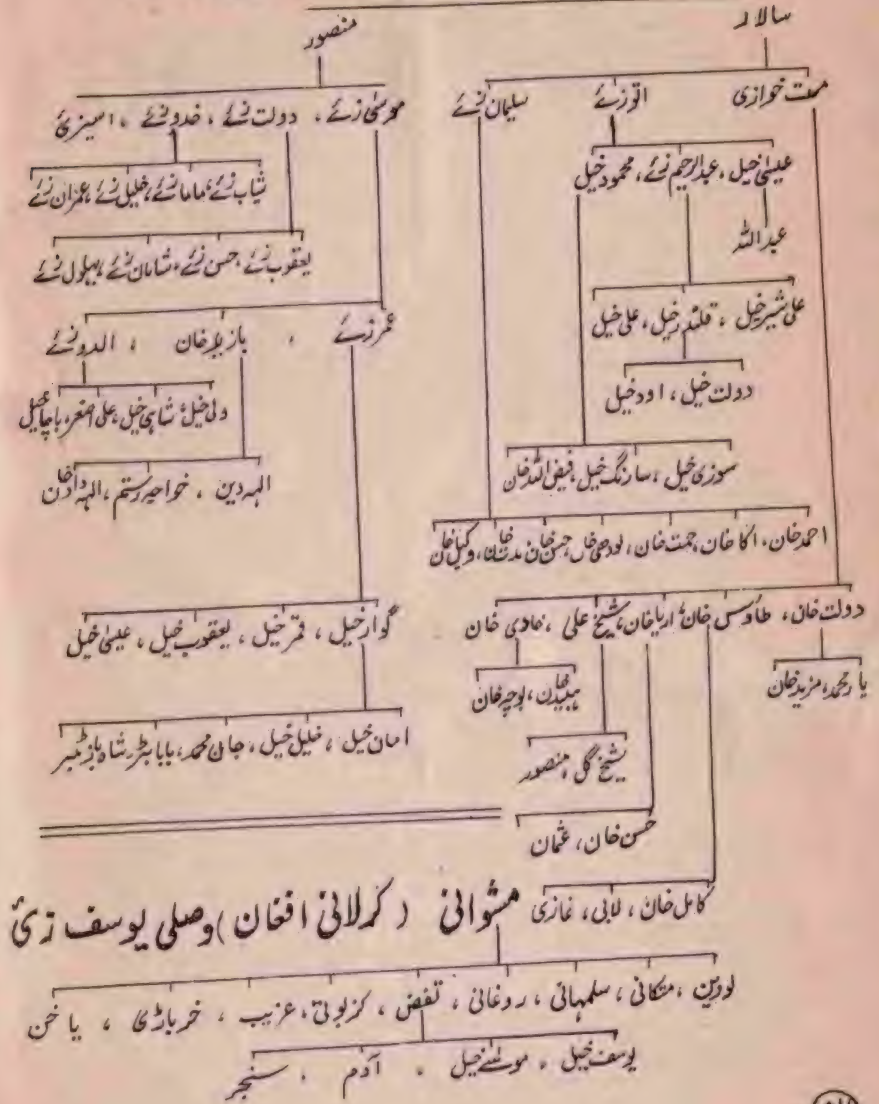 سالار
ممت خوازی اتوزئے سلیمان زئے
عیسیٰ خیل، عبدالرحیم زئے، محمود خیل
عبداللہ
علی شیر خیل، قلندر خیل، علی خیل
دولت خیل، اود خیل
سوزی خیل، سارنگ خیل، فیض اللہ خان
احمد خان، اکا خان، جمت خان، لودھی خان، حسن خان، مدت خان، وکیل خان
دولت خان، طاؤس خان، اریا خان، شیخ علی، ہادی خان
یار محمد، مزید خان
بوچہ خان
شیخ گل، منصور
حسن خان، عثمان
کامل خان، لابی، غازی
منصور
موسیٰ زئے، دولت زئے، خدوزئے، اسیزئ
شیاب زئے، مامازئے، خلیل زئے، عمران زئے
یعقوب زئے، حسن زئے، شامان زئے، بہلول زئے
عمر زئے، بازید خان، الدوزئے
ولی خیل، شاہی خیل، علی اصغر، باچا خیل
الہ دین، خواجہ رستم، الہ داد خان
گوار خیل، قمر خیل، یعقوب خیل، عیسیٰ خیل
امان خیل، خلیل خیل، جان محمد، بابا بٹر، شاہ باز
مشوانی (کرلانی افغان) وصلی یوسف زئ
لودین، متکانی، سلمہانی، روغانی، تفض، کزلوتی، غریب، خرباڑی، یاخن
یوسف خیل، موسٰے خیل، آدم، سنجر